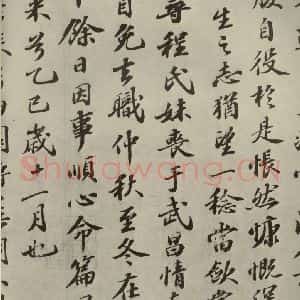 腹自役於是悵然慷慨深
生之志猶望一稔當斂
尋程氏妹喪于武昌情
自免去職仲秋至冬在
餘日因事順心命篇
來兮乙巳歲十一月也
Shufawang.cn